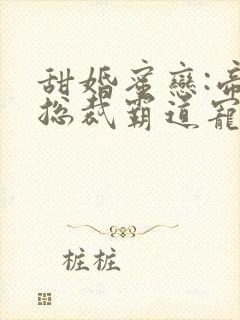 甜婚蜜戀:帝
總裁霸道寵
桩桩